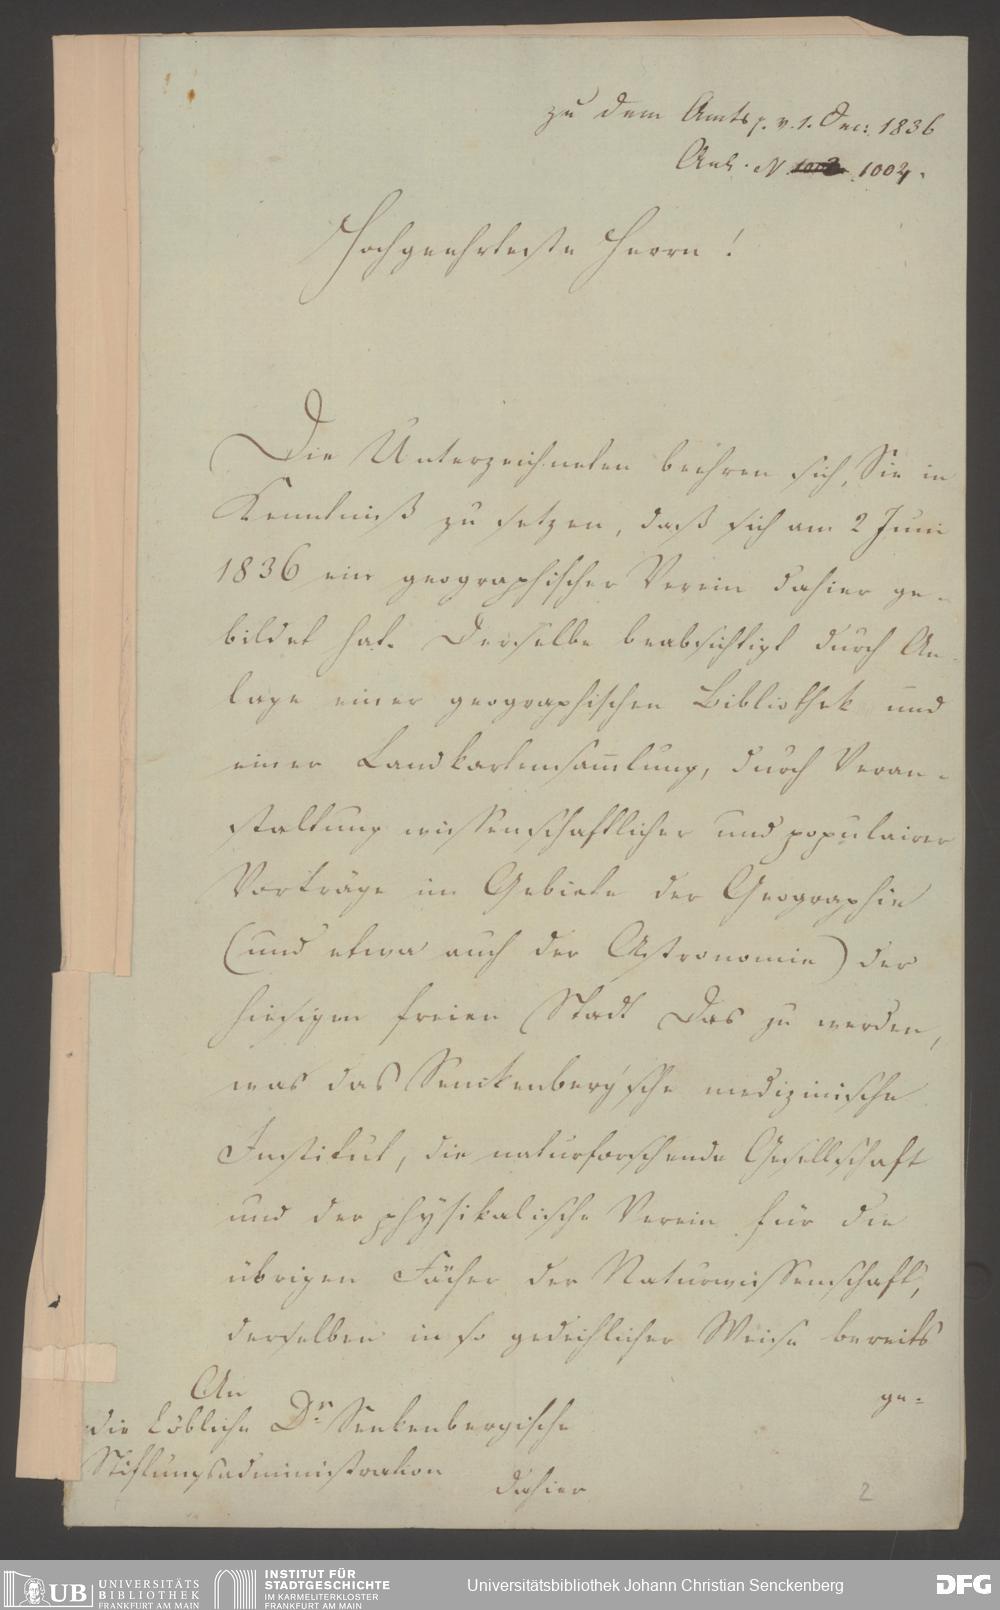 zu dem Amtsp. v. 1. Dec: 1836
Anl. N 1004.
Hochgeehrteste Herrn!
Die Unterzeichneten beehren sich, Sie in
Kenntniß zu setzen, daß sich am 2 Juni
1836 ein geographischer Verein dahier ge-
bildet hat. Derselbe beabsichtigt durch An-
lage einer geographischen Bibliothek und
einer Landkartensam̅lung, durch Veran-
staltung wissenschaftlicher und populairer
Vorträge im Gebiete der Geographie
(und etwa auch der Astronomie) der
hiesigen freien Stadt Das zu werden,
was das Senckenberg'sche medizinische
Institut, die naturforschende Gesellschaft
und der physikalische Verein für die
übrigen Fächer der Naturwissenschaft,
derselben in so gedeihlicher Weise bereits
ge-
An
die Löbliche Dr. Senkenbergische
Stiftungsadministration
dahier
2
UB UNIVERSITÄTS
BIBLIOTHEK
FRANKFURT AM MAIN
INSTITUT FÜR
STADTGESCHICHTE
IM KARMELITERKLOSTER
FRANKFURT AM MAIN
Universitätsbibliothek Johann Christian Senckenberg
DFG